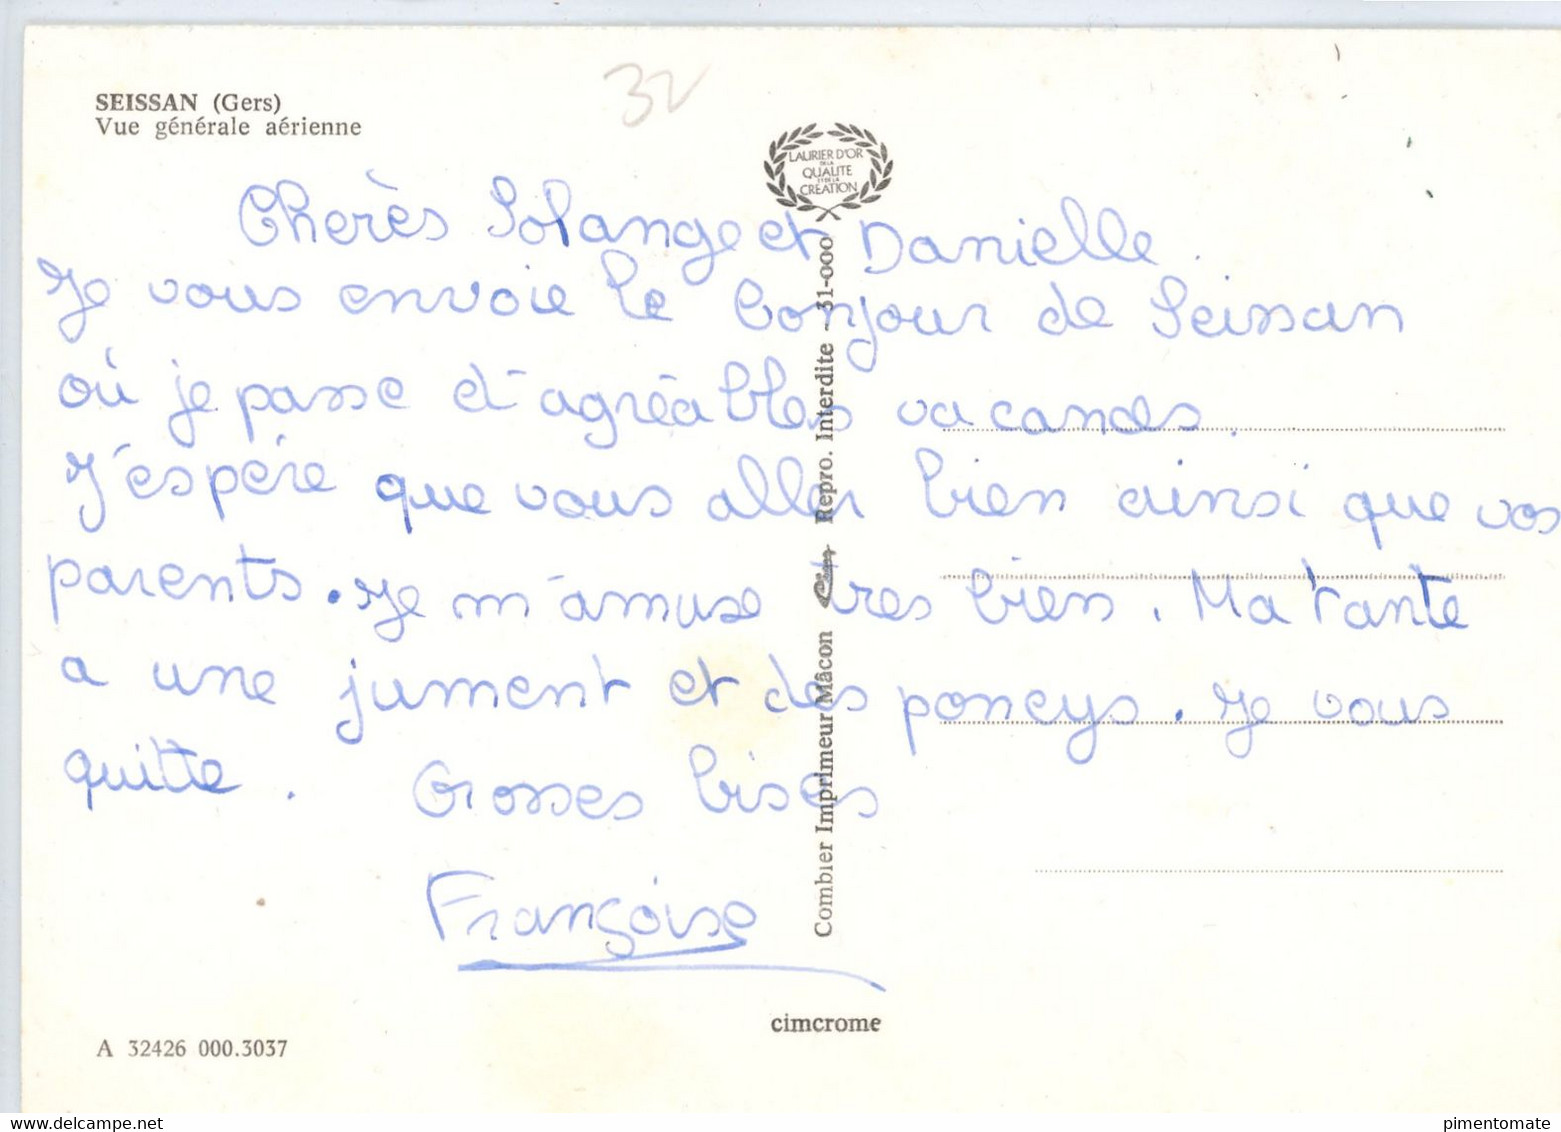 SEISSAN (Gers)
Vue générale aérienne
32
LAURIER D'OR
DE LA
QUALITE
ET DE LA
CREATION
Cherès Solange et Danielle.
Je vous envoie le bonjour de Seissan
où je passe d'agréables vacances.
J'espére que vous aller bien ainsi que vos
parents. Je m'amuse tres bien. Ma tante
a une jument et des poneys. Je vous
quitte. Grosses bises
Françoise
Combier Imprimeur Mâcon Repro. Interdite - 31-000
cimcrome
A 32426 000.3037
www.delcampe.net
pimentomate